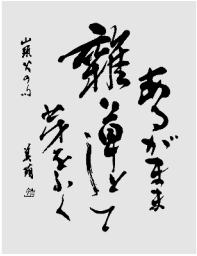 あるがまま
雑草として
芽をふく
山頭火の句